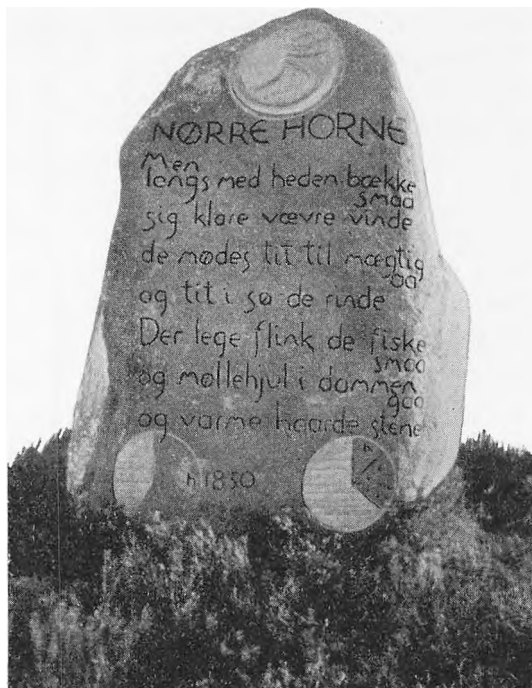 NØRRE HORNE
Men
langs med heden bække
smaa
sig klare vævre vinde
de mødes tit til mægtig
aa
og tit i sø de rinde
Der lege flink de fiske
smaa
og møllehjul i dammen
gaa
og varme haarde stene
h 1850